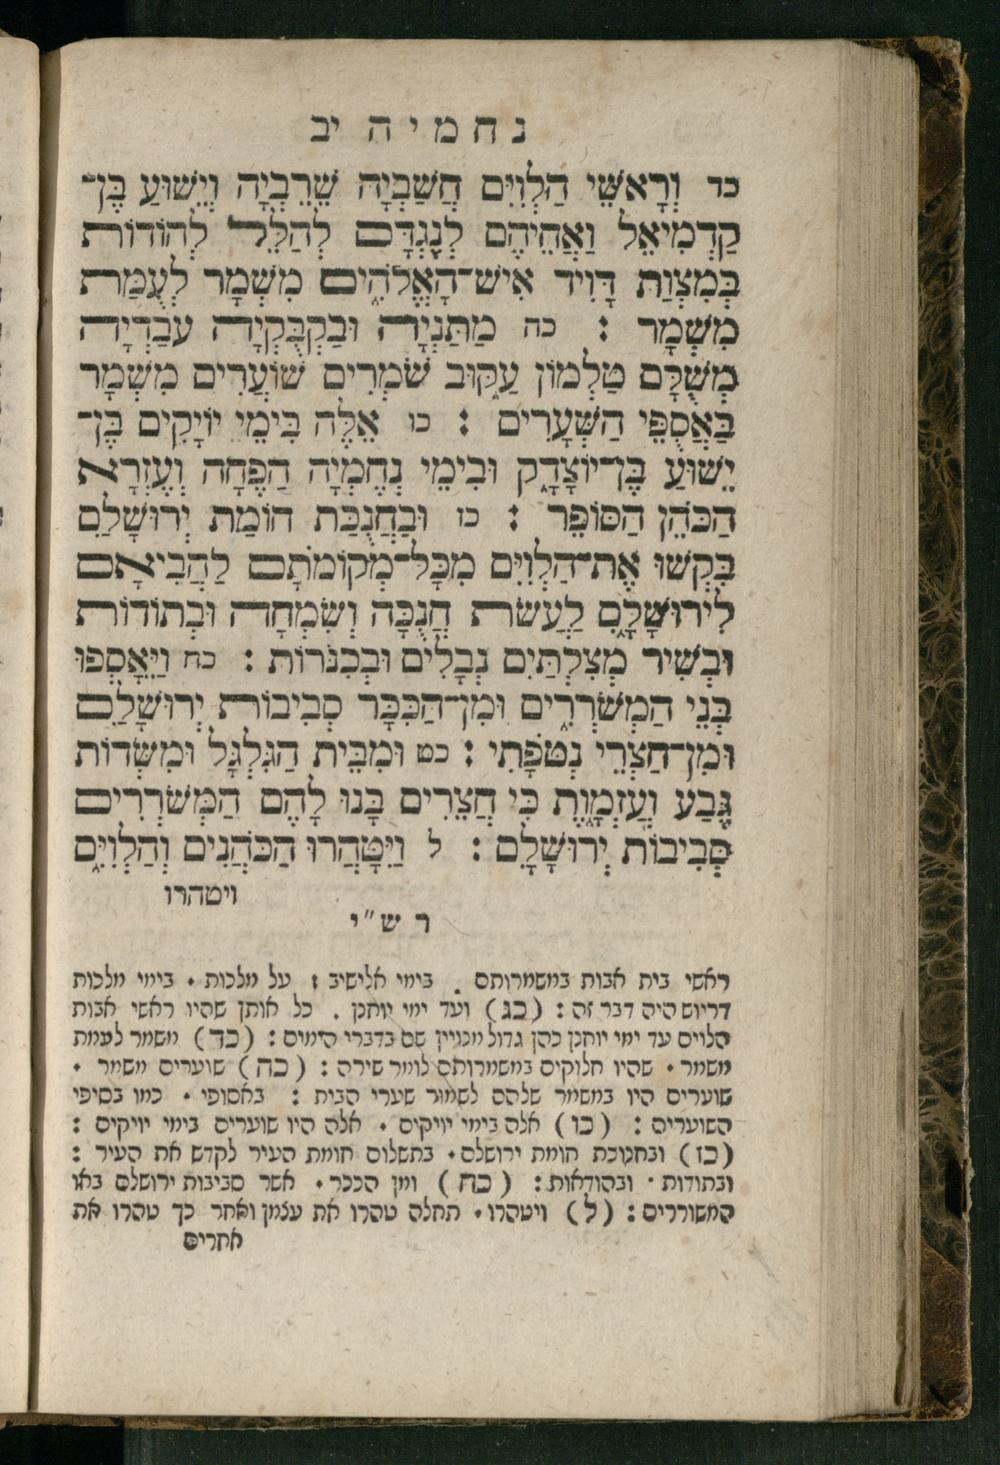 נחמיה יב
כד וְרָאשֵׁי הַלְוִיִּם חֲשַׁבְיָה שֵׁרֵבְיָה וְיֵשׁוּעַ בֶּן־
קַדְמִיאֵל וַאֲחֵיהֶם לְנֶגְדָּם לְהַלֵּל לְהוֹדוֹת
בְּמִצְוַת דָּוִיד אִישׁ־הָאֱלֹהִים מִשְׁמָר לְעֻמַּת
מִשְׁמָר : כה מַתַּנְיָה וּבַקְבֻּקְיָה עֹבַדְיָה
מְשֻׁלָּם טַלְמוֹן עַקּוּב שֹׁמְרִים שׁוֹעֲרִים מִשְׁמָר
בַּאֲסֻפֵּי הַשְּׁעָרִים : כו אֵלֶּה בִּימֵי יוֹיָקִים בֶּן־
יֵשׁוּעַ בֶּן־יוֹצָדָק וּבִימֵי נְחֶמְיָה הַפֶּחָה וְעֶזְרָא
הַכֹּהֵן הַסּוֹפֵר : כז וּבַחֲנֻכַּת חוֹמַת יְרוּשָׁלִַם
בִּקְשׁוּ אֶת־הַלְוִיִּם מִכָּל־מְקוֹמֹתָם לַהֲבִיאָם
לִירוּשָׁלִָם לַעֲשֹׂת חֲנֻכָּה וְשִׂמְחָה וּבְתוֹדוֹת
וּבְשִׁיר מְצִלְתַּיִם נְבָלִים וּבְכִנֹּרוֹת : כח וַיֵּאָסְפוּ
בְּנֵי הַמְשֹׁרְרִים וּמִן־הַכִּכָּר סְבִיבוֹת יְרוּשָׁלִַם
וּמִן־חַצְרֵי נְטֹפָתִי : כט וּמִבֵּית הַגִּלְגָּל וּמִשְּׂדוֹת
גֶּבַע וְעַזְמָוֶת כִּי חֲצֵרִים בָּנוּ לָהֶם הַמְשֹׁרְרִים
סְבִיבוֹת יְרוּשָׁלִָם : ל וַיִּטַּהֲרוּ הַכֹּהֲנִים וְהַלְוִיִּם
ויטהרו
רש״י
ראשי בית אבות במשמרותם . בימי אלישיב : על מלכות · בימי מלכות
דריוש היה דבר זה : (כג) ועד ימי יוחנן . כל אותן שהיו ראשי אבות
הלוים עד ימי יוחנן כהן גדול מנויין שם בדברי הימים : (כד) משמר לעמת
משמר · שהיו חלוקים במשמרותם לומר שירה : (כה) שוערים משמר ·
שוערים היו במשמר שלהם לשמור שערי הבית : באסופי · כמו בסיפי
השוערים : (כו) אלה בימי יויקים · אלה היו שוערים בימי יויקים :
(כז) ובחנוכת חומת ירושלם · בתשלום חומת העיר לקדש את העיר :
ובתודות · ובהודאות : (כח) ומן הככר · אשר סביבות ירושלם באו
המשוררים : (ל) ויטהרו · תחלה טהרו את עצמן ואחר כך טהרו את
אחרים